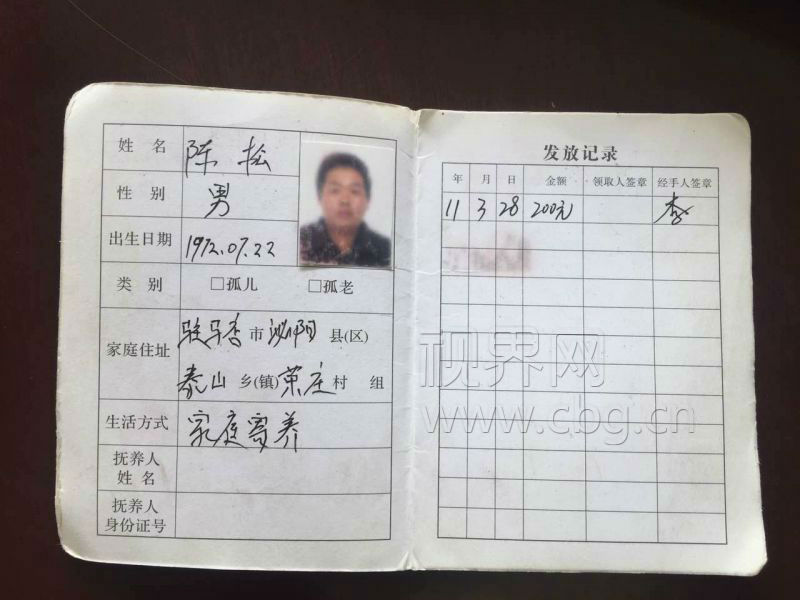 姓 名 陈 松
性 别 男
出生日期 1972.07.22
类 别 □孤儿 □孤老
家庭住址 驻马店 市 泌阳 县(区)
泰山 乡(镇) 荣庄 村 组
生活方式 家庭寄养
抚养人
姓 名
抚养人
身份证号
发放记录
年 月 日 金额 领取人签章 经手人签章
11 3 28 200元 李
视界网
www.cbg.cn